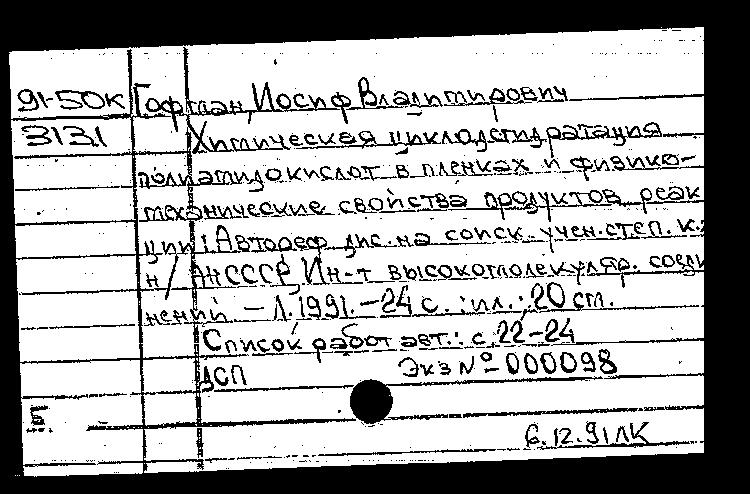 91-50к Гофман, Иосиф Владимирович
3131 Химическая циклодегидратация
полиамидокислот в пленках и физико-
механические свойства продуктов реак
ции: Автореф. дис. на соиск. учен. степ. к.х
н / АН СССР, Ин-т высокомолекуляр. соеди
нений. - Л. 1991. - 24 с. : ил. ; 20 см.
Список работ авт.: с. 22-24
ДСП Экз № 000098
6.12.91 ЛК